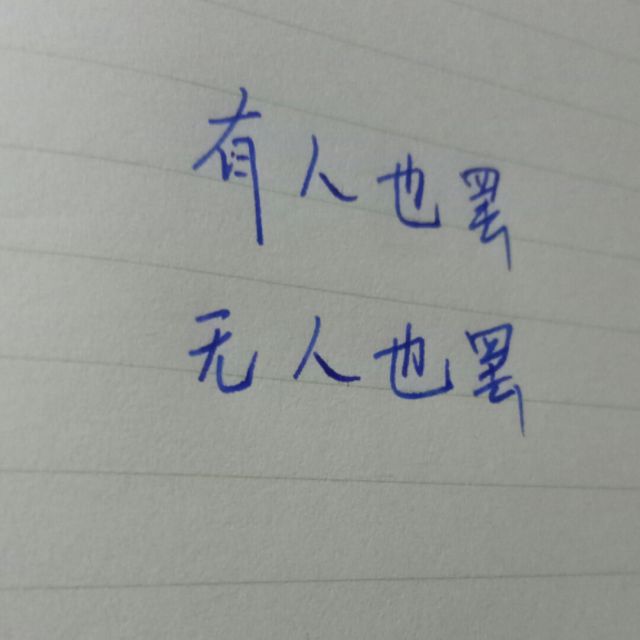 有人也罢
无人也罢